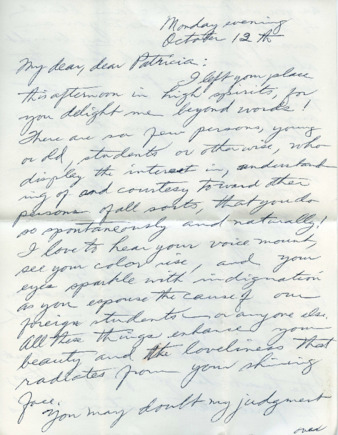 Monday evening
October 12th
My dear, dear Patricia:
I left your place
this afternoon in high spirits, for
you delight me beyond words!
There are so few persons, young
or old, students or otherwise, who
display the interest in, understand-
ing of and courtesy toward other
persons of all sorts, that you do
so spontaneously and naturally!
I love to hear your voice mount,
see your color rise, and your
eyes sparkle with indignation
as you espouse the cause of our
foreign students or anyone else.
All these things enhance your
beauty and the loveliness that
radiates from your shining
face.
You may doubt my judgment
over